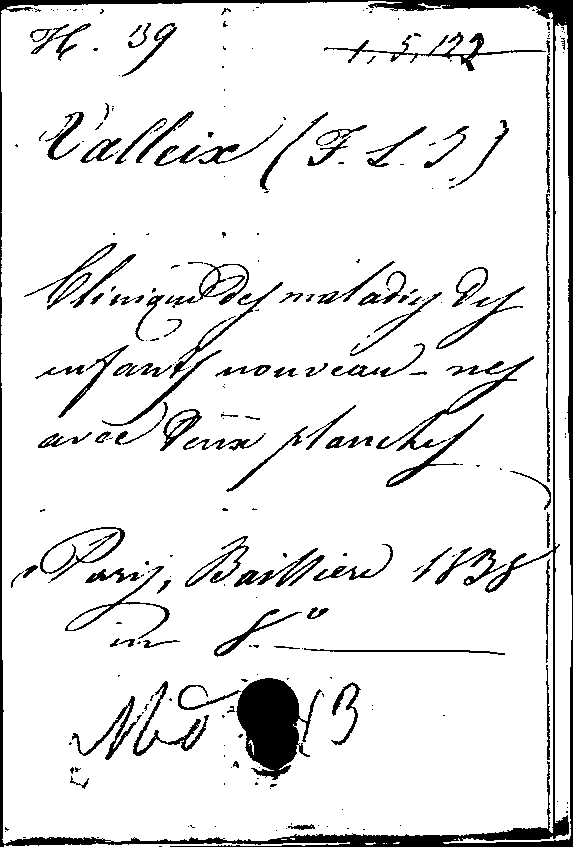 H. 39 1,5,122
Valleix (F. L. J)
Clinique des maladies des
enfants nouveau-nes
avec deux planches
Paris, Baillière 1838
in 8°
B